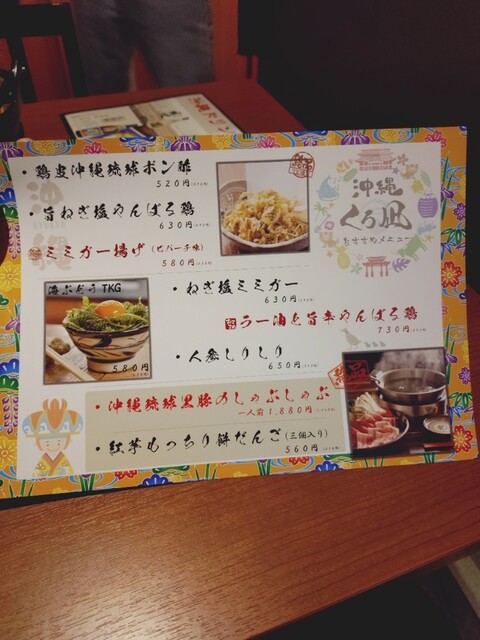 ・鶏皮沖縄琉球ポン酢
520円
・旨ねぎ塩やんばる鶏
630円
ミミガー揚げ（ピパーチ味）
580円
沖縄
くろ凪
おすすめメニュー
海ぶどう TKG
580円
・ねぎ塩ミミガー
630円
ラー油と旨辛やんばる鶏
730円
・人参しりしり
650円
・沖縄琉球黒豚のしゃぶしゃぶ
一人前 1,880円
・紅芋もっちり餅だんご（三個入り）
560円